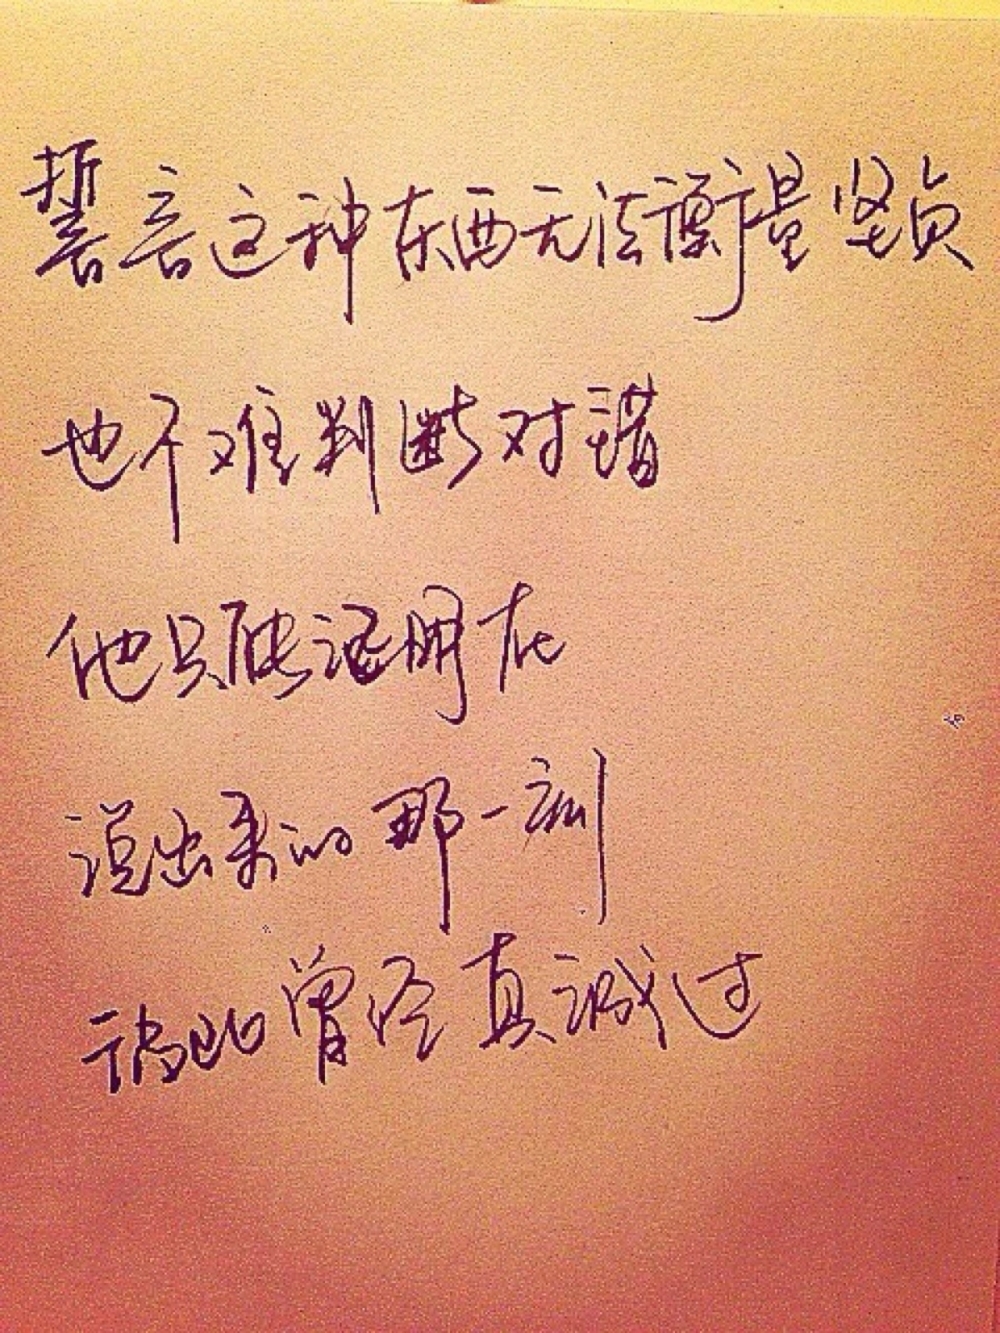 誓言这种东西无法衡量坚贞
也不难判断对错
他只能证明在
说出来的那一刻
此曾经真诚过